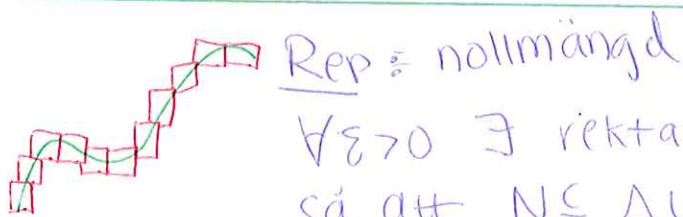 Rep: nollmängd
∀ε>0 ∃ rekta
så att N⊆ ΔU